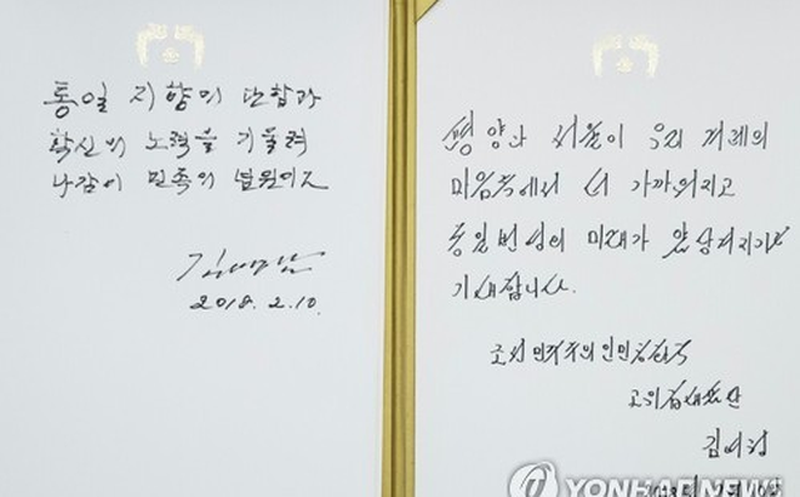 통일 지향의 단합과
확신의 노력을 기울려
나감이 민족의 념원이고
김영남
2018. 2. 10.
평양과 서울이 우리 겨레의
마음속에서 더 가까워지고
통일번영의 미래가 앞당겨지기를
기대합니다.
조선민주주의인민공화국
고위급대표단
김여정
YONHAP NEWS